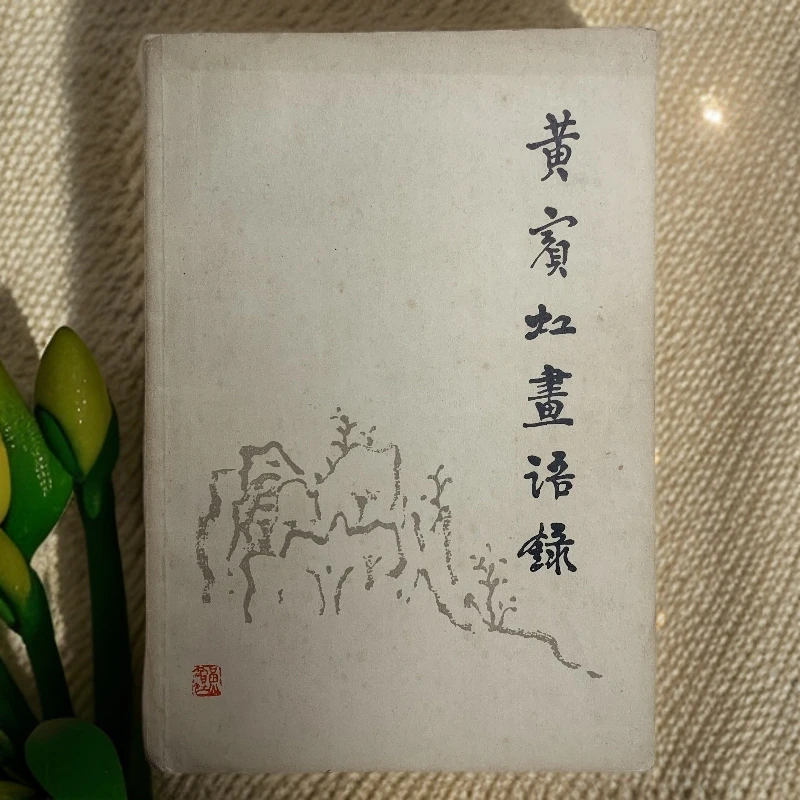 黄賓虹畫語錄